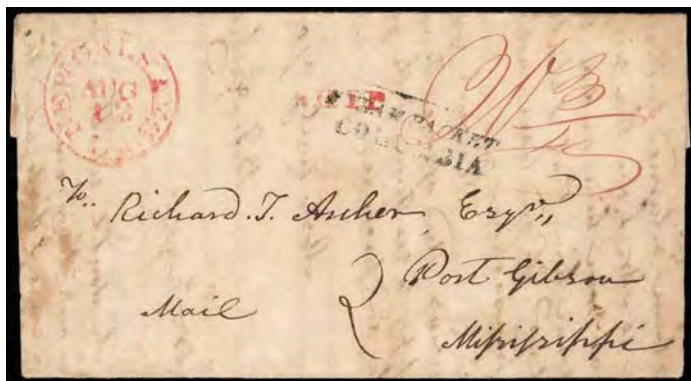 AUG
STEAM PACKET
COLUMBIA
To. Richard. T. Archer, Esqr,,
Port Gibson
Mail 2
Mississippi